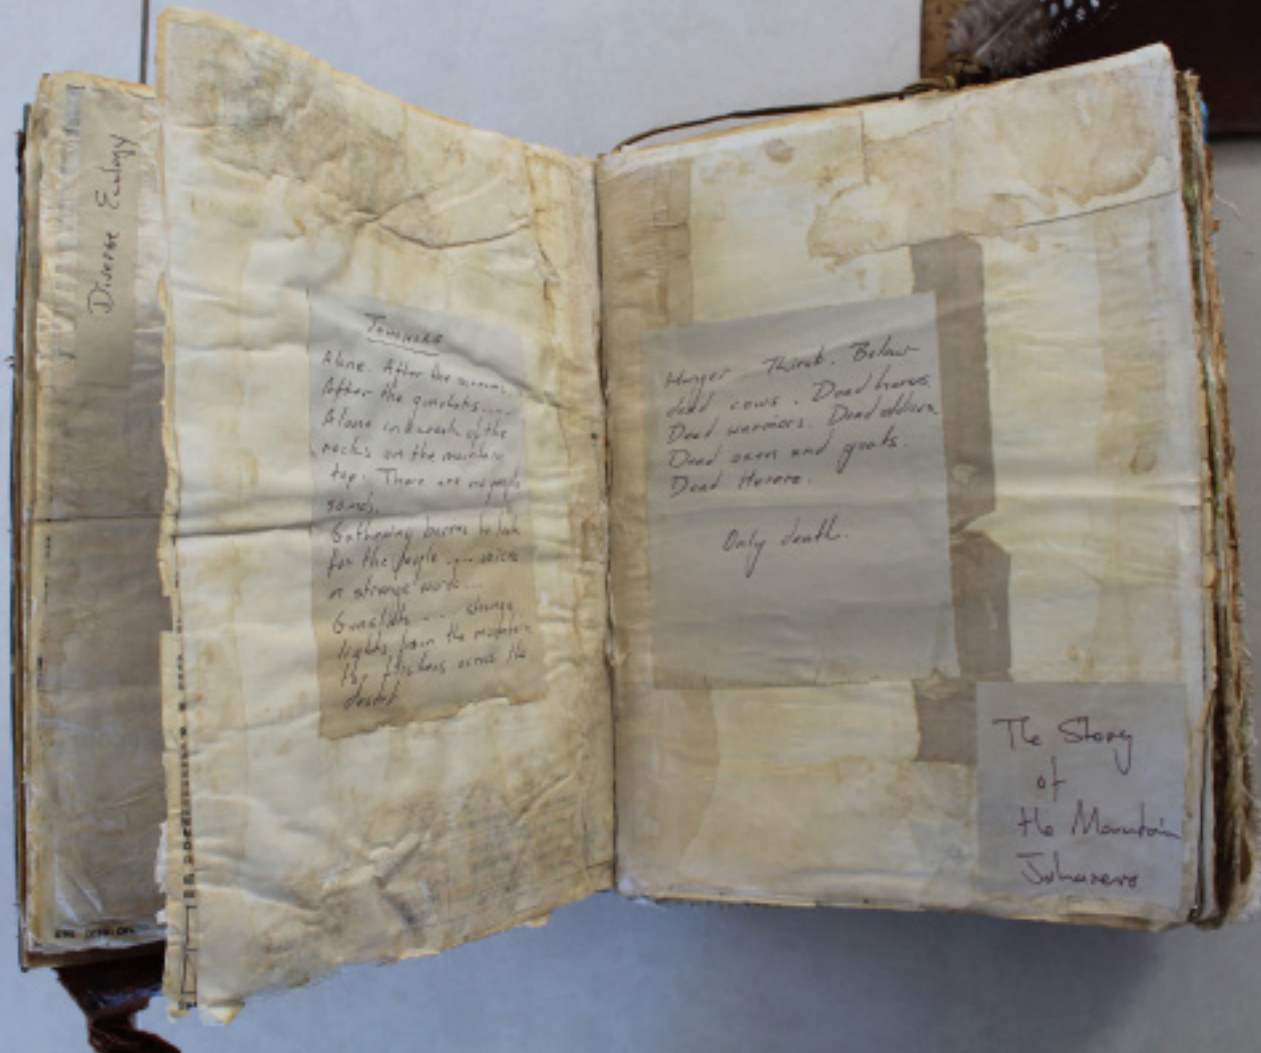 Diverse Ecology
Alone. After the
After the gunshots....
Alone in a of the
rocks on the mountain
top. There are no people
sounds.
Gathering berries to look
for the people .... voices
in strange words....
Gunshots .... strange
lights from the mountain
top flickers across the
desert
Hunger. Thirst. Below
dead cows. Dead horses.
Dead warriors. Dead soldiers.
Dead oxen and goats.
Dead Herero.
Only death.
The Story
of
the Mountain